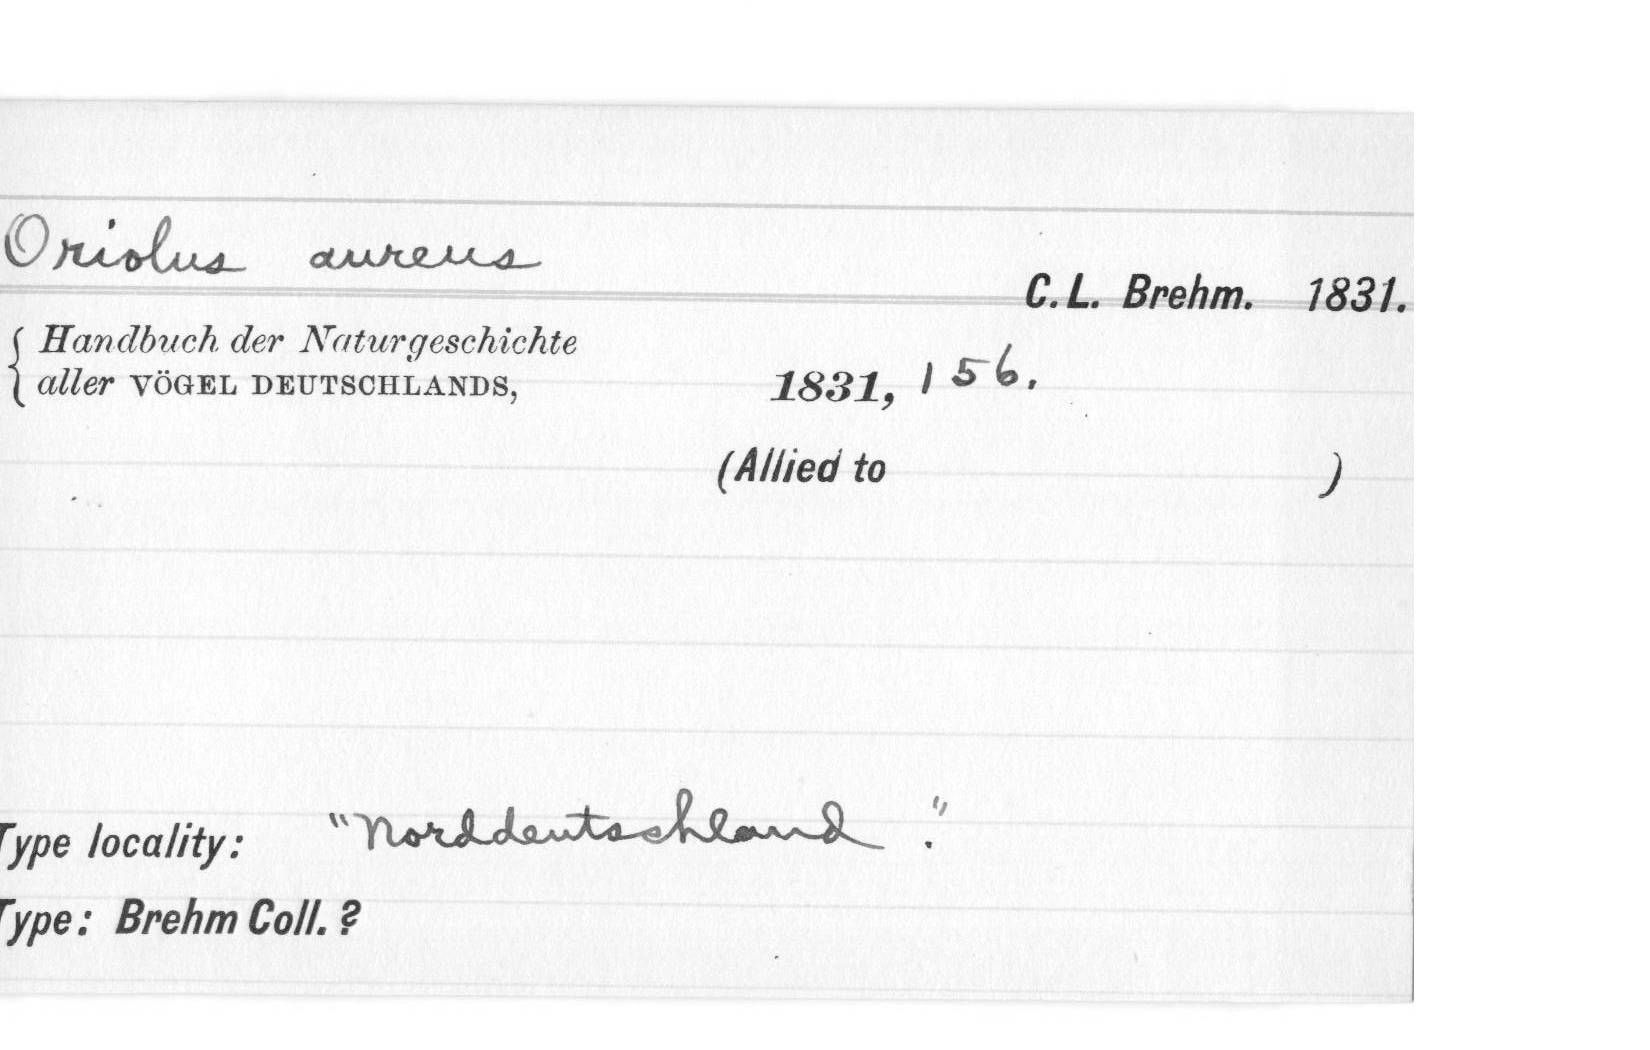 Oriolus aureus
C. L. Brehm. 1831.
Handbuch der Naturgeschichte
aller VÖGEL DEUTSCHLANDS, 1831, 156.
(Allied to )
Type locality: "Norddeutschland."
Type: Brehm Coll. ?